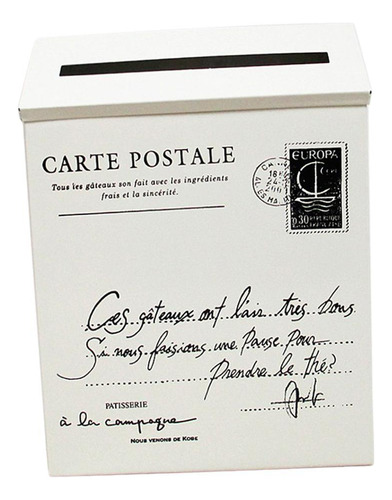 CARTE POSTALE
Tous les gâteaux son fait avec les ingrédients
frais et la sincérité.
EUROPA
0.30 REPUBLIQUE
FRANCAISE
Ces gâteaux ont l'air très bons
Si nous faisions une Pause Pour
Prendre le thé?
PATISSERIE
à la campagne
NOUS VENONS DE KOBE